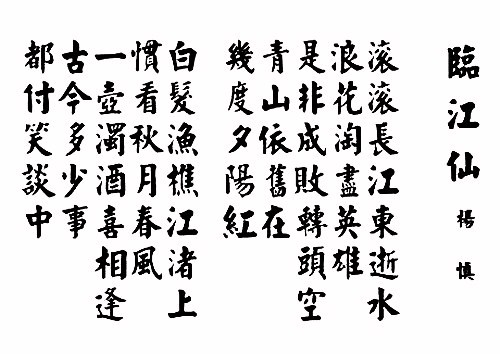 臨江仙 楊慎
滚滚長江東逝水
浪花淘盡英雄
是非成敗轉頭空
青山依舊在
幾度夕陽紅
白髮漁樵江渚上
慣看秋月春風
一壺濁酒喜相逢
古今多少事
都付笑談中